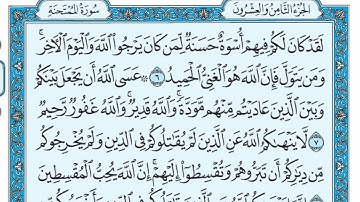 الجزء الثامن والعشرون سورة الممتحنة
لَقَدْ كَانَ لَكُمْ فِيهِمْ أُسْوَةٌ حَسَنَةٌ لِّمَن كَانَ يَرْجُوا۟ ٱللَّهَ وَٱلْيَوْمَ ٱلْءَاخِرَ ۚ
وَمَن يَتَوَلَّ فَإِنَّ ٱللَّهَ هُوَ ٱلْغَنِىُّ ٱلْحَمِيدُ ٦ عَسَى ٱللَّهُ أَن يَجْعَلَ بَيْنَكُمْ
وَبَيْنَ ٱلَّذِينَ عَادَيْتُم مِّنْهُم مَّوَدَّةً ۚ وَٱللَّهُ قَدِيرٌ ۚ وَٱللَّهُ غَفُورٌ رَّحِيمٌ
٧ لَّا يَنْهَىٰكُمُ ٱللَّهُ عَنِ ٱلَّذِينَ لَمْ يُقَٰتِلُوكُمْ فِى ٱلدِّينِ وَلَمْ يُخْرِجُوكُم
مِّن دِيَٰرِكُمْ أَن تَبَرُّوهُمْ وَتُقْسِطُوٓا۟ إِلَيْهِمْ ۚ إِنَّ ٱللَّهَ يُحِبُّ ٱلْمُقْسِطِينَ